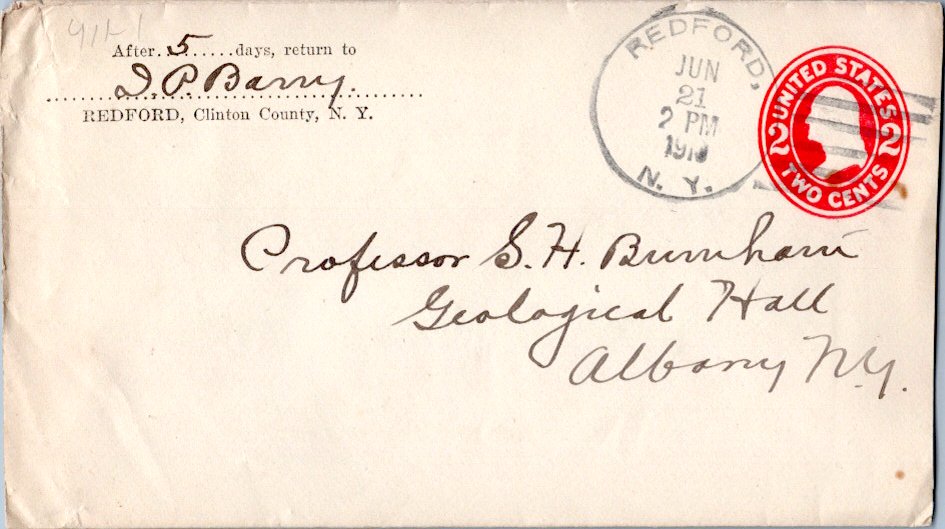 After 5 days, return to
D. P. Barry.
REDFORD, Clinton County, N. Y.
REDFORD,
JUN
21
2 PM
N. Y.
UNITED STATES
2 2
TWO CENTS
Professor S. H. Burnham
Geological Hall
Albany N.Y.